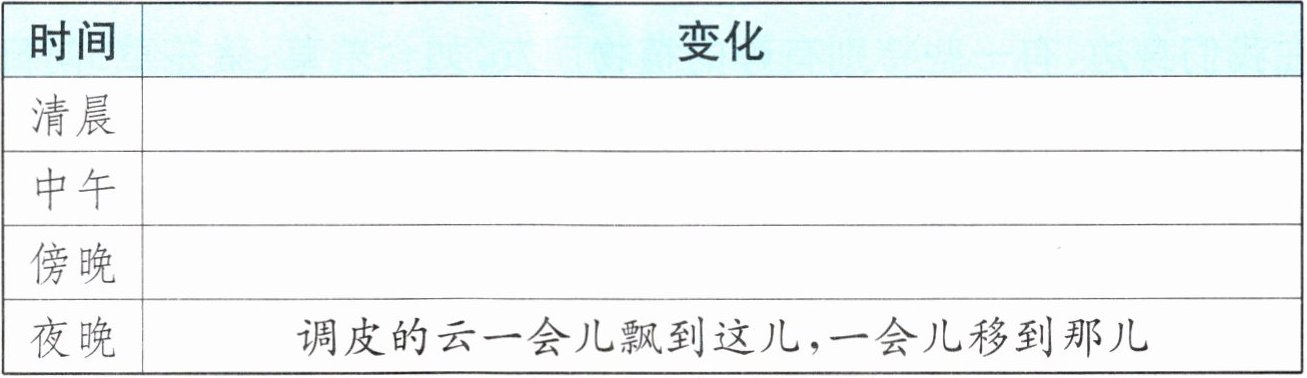 时间 变化
清晨
中午
傍晚
夜晚 调皮的云一会儿飘到这儿,一会儿移到那儿